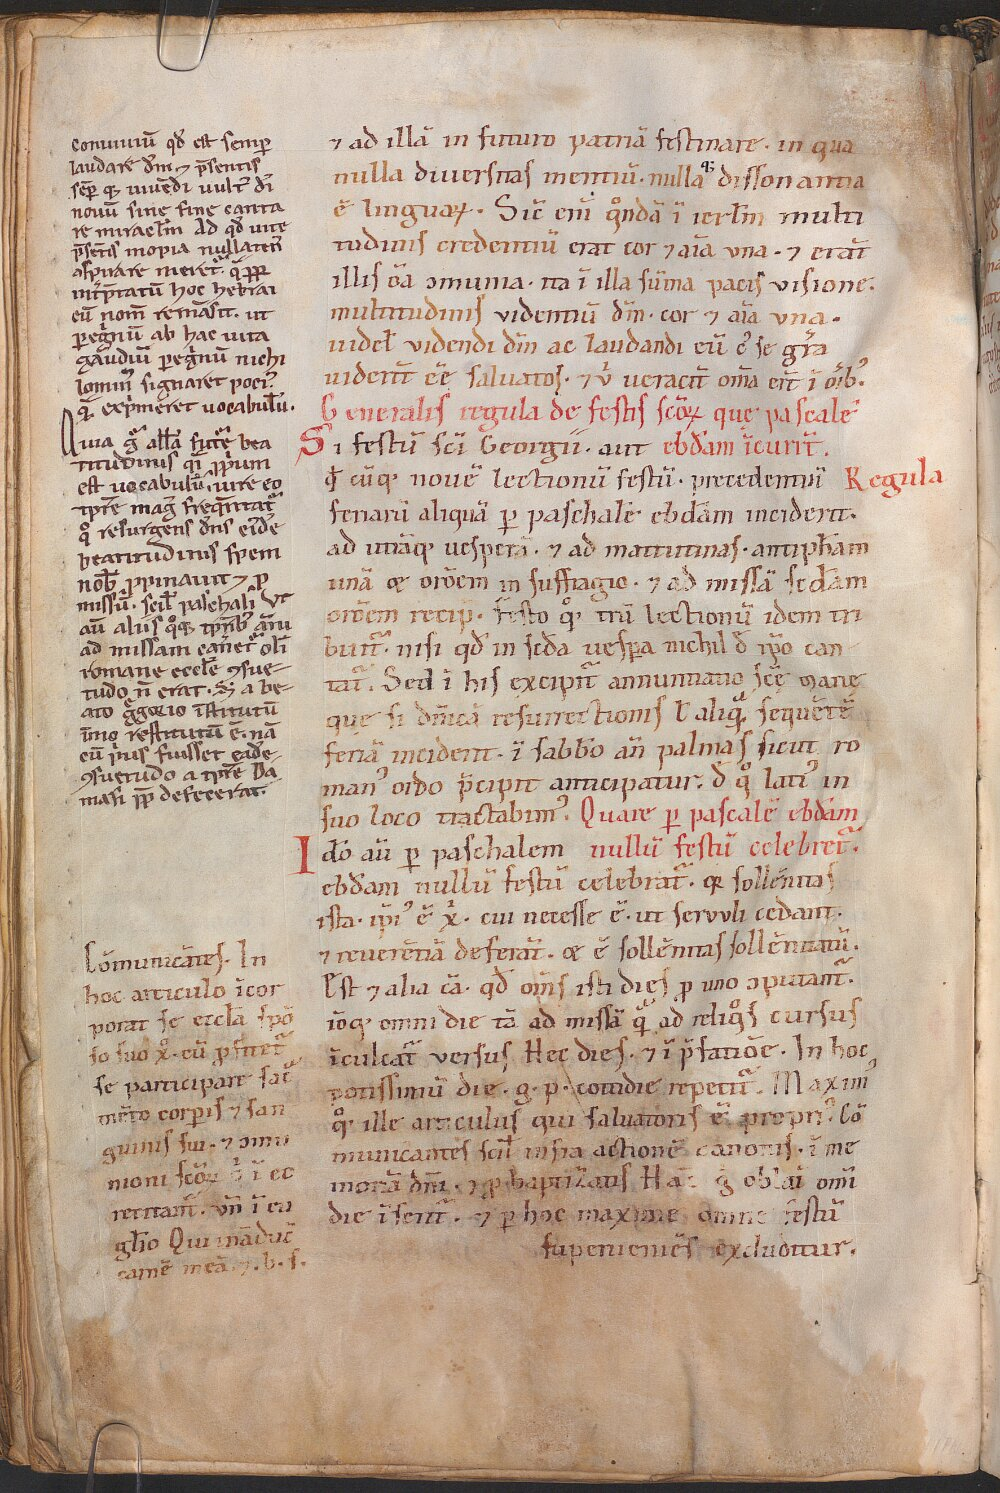 conuiuiū qd̄ est semp̄
laudare dm̄ ⁊ p̄sentis
sēp̄ q; uiuēdi uult᷒ dī
nouū sine fine canta
re mirac̄lm Ad qd̄ uite
p̄sētis inopia nullaten᷒
aspirare meret᷒
int̄p̄tatū hoc hebrai
cū nom̄ remāsit. ut
peg̊nū ab hac uita
gaudiū peg̊nū nichi
lomin᷒ signaret poci᷒
q̄ exp̄meret uocabulū.
Quia g̊ all̄a futē bea
titudinis p̄p̄ium
est uocabulū. iure eo
tp̄re mag̊ freq̄ntat᷒
q̊ resurgens dn̄s eide
beatitudinis spem
nob̄ p̄pinauit ⁊ p̄
misit. scil̄ paschali. Ut
aū aliis q̊q; tp̄rib᷒ añu
ad missam canet᷒ oli
romane eccle ꝯsue-
tudo n̄ erat. S; a be-
ato g̊gorio īstitutū
ūmo restitutū ē. nā
cū p̄us fuisset eade
ꝯsuetudo a tp̄re Da
masi pp̄ defecerat.
Cōmunicātes. In
hoc articulo īcor
porat se eccl̄a spō
so suo xp̄o. cū p̄fitet᷒
se participare sac̄
mēto corporis ⁊ san
guinis sui. ⁊ ꝯmu
nioni scōꝝ q̄ ī ec
recitant᷒. vn̄ ī eu
gl̄io Qui māduc̄
carnē meā. ⁊. b. s.
⁊ ad illā in futuro patriā festinare. in qua
nulla diuersitas mentiū. nulla q; dissonantia
ē linguaꝝ. Sic̄ eni q̊ndā ī ierl̄m multi
tudinis credentiū erat cor ⁊ aīa vna. ⁊ erāt
illis oīa ꝯmunia. ita ī illa sūma pacis visione.
multitudinis videntiū dm̄. cor ⁊ aīa vna.
videl̄ videndi dm̄ ac laudandi eū c᷒ se gr̄a
viderīt eē saluatos. ⁊ ut veracit̄ oīa erīt ī oīb᷒.
Generalis regula de festis scōꝝ que pascalē
Si festū sci Georgii. aut ebdam īcurit̄.
q̄ cūq; nouē lectionū festū. precedentiū Regula
fenariū aliquā p̄ paschalē ebdām inciderit.
ad utrāq; uesperā. ⁊ ad mattutinas. antiph̄am
unā ⁊ orōem in suffragio. ⁊ ad missā sedam
orōem recip. festo q̊q; triū lectionū idem tri
buit᷒. nisi qd̄ in scda vespera nichil d̄ ip̄o can
tat᷒. Sed ī his excipit᷒ annuntiatio scē Marie
que si dn̄ica resurrectionis l̄ aliq̄ sequētē
feriā inciderit. ī sabbo an̄ palmas sicut ro
man᷒ ordo p̄cipit anticipatur. d̄ q̊ lati᷒ in
suo loco tractabim᷒. Quare p̄ pascalē ebdām
Ido aū p̄ paschalem nullū festū celebret᷒.
ebdam nullū festū celebrat᷒. q; sollēnitas
ista. ip̄i᷒ ē xp̄i. cui necesse ē. ut servuli cedant.
⁊ reuerētiā deferāt. q; ē sollēnitas sollēnitatū.
Est ⁊ alia cā. qd̄ om̄s isti dies p̄ uno ꝯputant᷒.
iōq; omni die tā ad missā q̄ ad relig̊s cursus
īculcat᷒ versus Hec dies. ⁊ ī p̄fatiōe. In hoc
potissimū die. g. p. cottidie repetit᷒. Maxim᷒
q̊ ille articulus qui saluatoris ē propri᷒. Cō
municantes scil̄ infra actionē canonis. ī me
moriā dn̄i. ⁊ p̄ baptizatis Hāc g̊ oblat̄ omī
die īserit᷒. ⁊ p̄ hoc maxime omne festū
superueniēs excluditur.